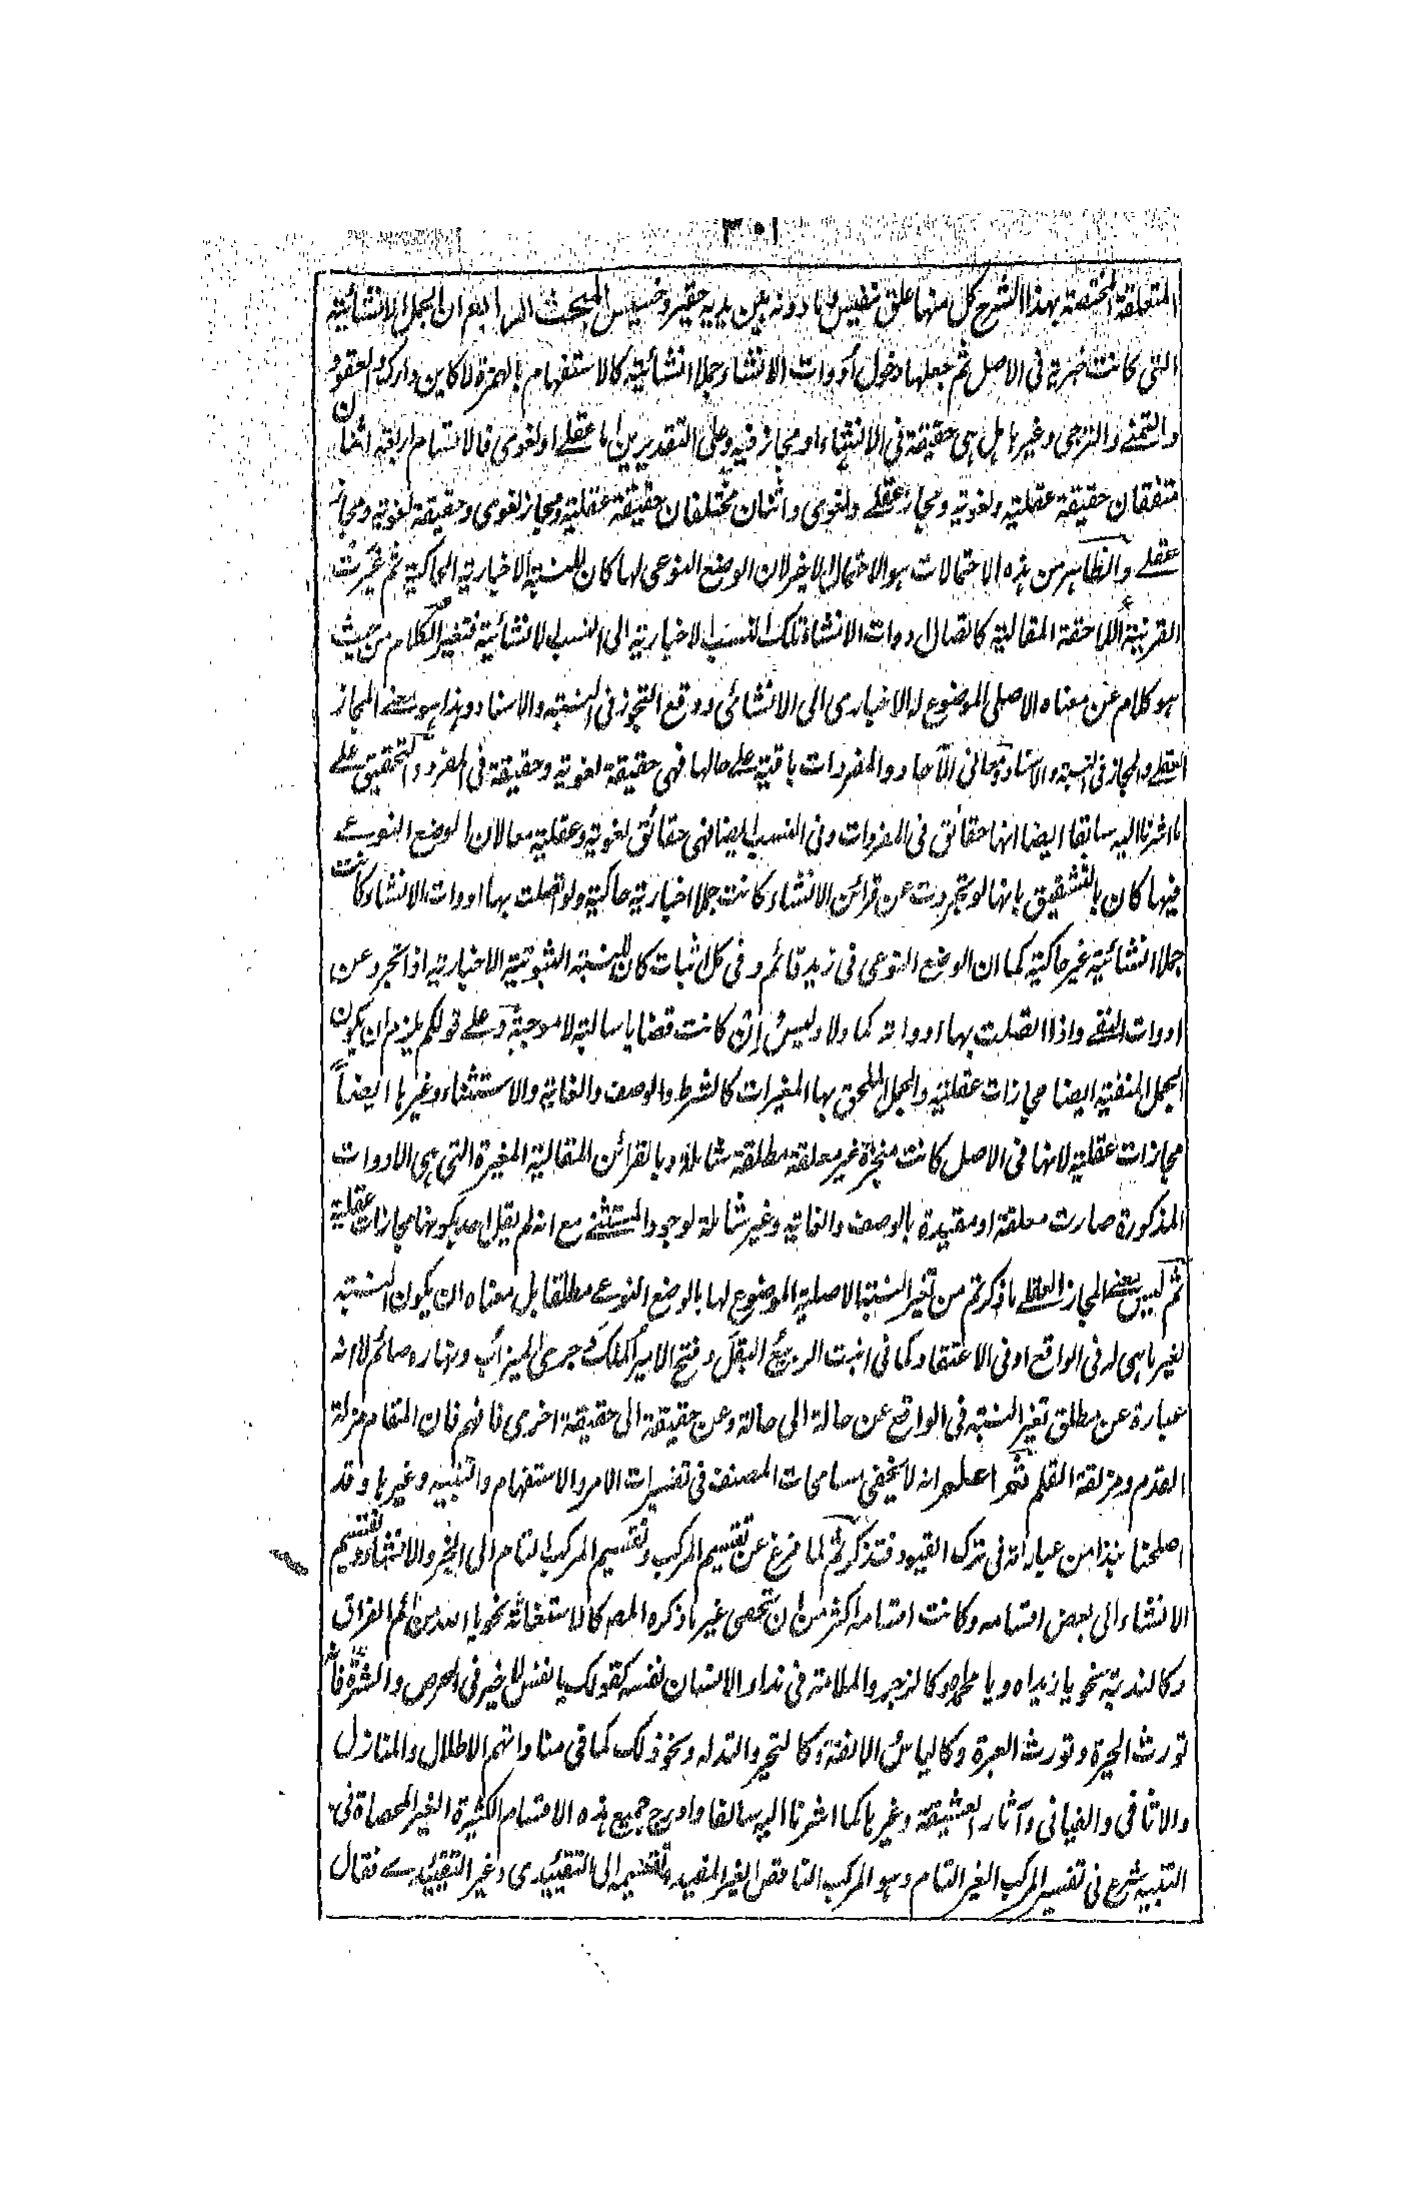 ٣٠١
المتعلقة المختصة بهذا الشرح كل منها علق نفيس وما دونه بين يديه حقير وخسيس المبحث الرابع ان الجمل الانشائية
التى كانت خبرية فى الاصل ثم جعلها دخول ادوات الانشاء جملا انشائية كالاستفهام بالهمزة لا كاين والعقود
والتمنے والترجى وغيرها هل هى حقيقة فى الانشاء او مجاز فيه وعلى التقديرين اما عقلے او لغوى فالاقسام اربعة اثنان
متفقان حقيقة عقلية ولغوية ومجاز عقلے ولغوى واثنان مختلفان حقيقة عقلية ومجاز لغوى وحقيقة لغوية ومجاز
عقلے والظاهر من هذه الاحتمالات هو الاحتمال الاخير لان الوضع النوعى لها كان للنسبة الاخبارية الحاكية ثم غيرت
القرينة اللاحقة المقالية كاتصال ادوات الانشاء تلك النسب الاخبارية الى النسب الانشائية فتغير الكلام من حيث
هو كلام عن معناه الاصلى الموضوع له الاخبارى الى الانشائى ووقع التجوز فى النسبة والاسناد وهذا هو معنے المجاز
العقلے والمجاز فى النسبة والاسناد واما فى الآحاد والمفردات باقية علے حالها فهى حقيقة لغوية وحقيقة فى المفرد والتحقيق علے
ما اشرنا اليه سابقا ايضا انها حقائق فى المفردات وفى النسب ايضا فهى حقائق لغوية وعقلية معا لان الوضع النوعے
فيها كان بالتشقيق بانها لو تجردت عن قرائن الانشاء كانت جملا اخبارية حاكية ولو اتصلت بها ادوات الانشاء كانت
جملا انشائية غير حاكية كما ان الوضع النوعى فى زيد قائم وفى كل اثبات كان للنسبة الثبوتية الاخبارية اذا تجرد عن
ادوات النفے واذا اتصلت بها ادواته كما ولا وليس وان كانت قضايا سالبة لا موجبة وعلے قولكم يلزم ان يكون
الجمل المنفية ايضا مجازات عقلية والجمل الملحق بها المغيرات كالشرط والوصف والغاية والاستثناء وغيرها ايضاً
مجازات عقلية لانها فى الاصل كانت منجزة غير معلقة مطلقة شاملة وبالقرائن المقالية المغيرة التى هى الادوات
المذكورة صارت معلقة او مقيدة بالوصف والغاية وغير شاملة لوجود المستثنے مع انه لم يقل احد بكونها مجازات عقلية
ثم ليس معنے المجاز العقلے ما ذكرتم من تغير النسبة الاصلية الموضوع لها بالوضع النوعے مطلقا بل معناه ان يكون النسبة
لغير ما هى له فى الواقع او فى الاعتقاد كما فى انبت الربيع البقل وفتح الامير الملك وجرى الميزاب ونهاره صائم لا انه
عبارة عن مطلق تغير النسبة فى الواقع عن حالة الى حالة وعن حقيقة الى حقيقة اخرى فافهم فان المقام مزلة
القدم ومزلقة القلم ثم اعلم انه لا يخفى مسامحات المصنف فى تفسيرات الامر والاستفهام والتنبيه وغيرها وقد
اصلحنا نبذا من عباراته فى ترك القيود فتذكر ثم لما فرغ عن تقسيم المركب وتقسيم المركب التام الى الخبر والانشاء وتقسيم
الانشاء الى بعض اقسامه وكانت اقسامه اكثر من ان تحصى غير ما ذكره المص كالاستغاثة نحو يا الله من الم الفراق
وكالندبة نحو يا زيداه ويا محمداه وكالزجر والملامة فى نداء الانسان نفسه كقولك يا نفس لا خير فى الحرص والشره فانها
تورث الحيرة وتورث العبرة وكالياس الالفة وكالتحير والتدله ونحو ذلك كما فى مناداتهم الاطلال والمنازل
والاثافى والفيافى وآثار العشيقة وغيرها كما اشرنا اليه سالفا وادرج جميع هذه الاقسام الكثيرة الغير المحصاة فى
التنبيه شرع فى تفسير المركب الغير التام وهو المركب الناقص الغير المفيد وتقسيمه الى التقييدى وغير التقييدے فقال